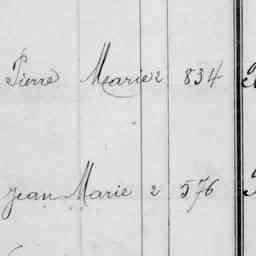 Pierre Marie 2 834
Jean Marie 2 576